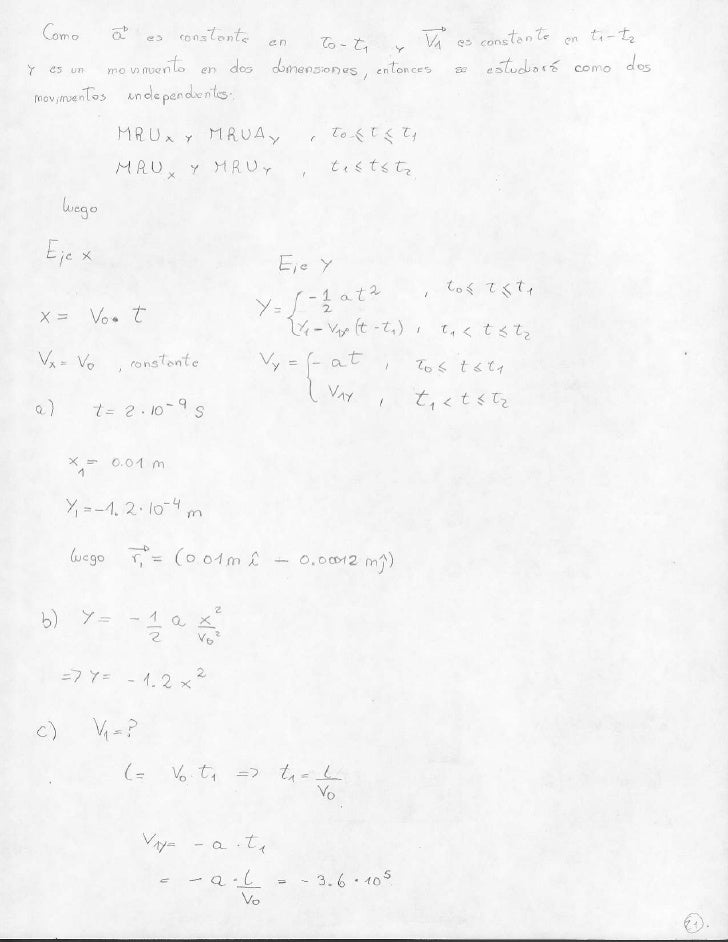 Como a⃗ es constante en t0-t1 y V⃗1 es constante en t1-t2
y es un movimiento en dos dimensiones, entonces se estudiará como dos
movimientos independientes.
MRUx y MRUAy , t0 ≤ t ≤ t1
MRUx y MRUy , t1 ≤ t ≤ t2
luego
Eje x
Eje y
x = V0 • t
y = { -1/2 at² , t0 ≤ t ≤ t1
y1 - V1y • (t - t1) , t1 < t ≤ t2
Vx = V0 , constante
Vy = { - at , t0 ≤ t ≤ t1
V1y , t1 < t ≤ t2
a) t = 2 · 10⁻⁹ s
x1 = 0.01 m
y1 = -1.2 · 10⁻⁴ m
luego r⃗1 = (0.01m î - 0.00012 m ĵ)
b) y = - 1/2 a x²/V0²
=> y = - 1.2 x²
c) V1 = ?
l = V0 · t1 => t1 = l/V0
V1y = - a · t1
= - a · l/V0 = - 3.6 · 10⁵
21.